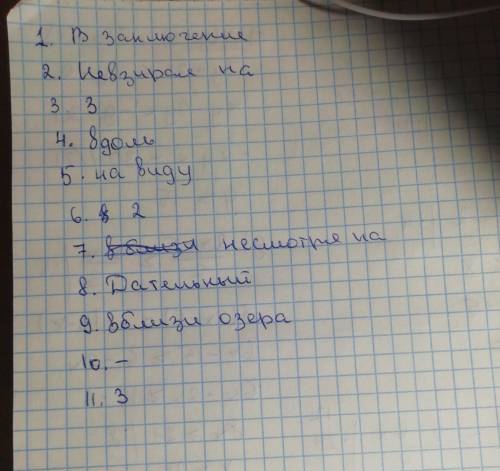 1. В заключение
2. Невзирая на
3. 3
4. вдоль
5. на виду
6. в 2
7. вблизи несмотря на
8. Дательный
9. вблизи озера
10. –
11. 3